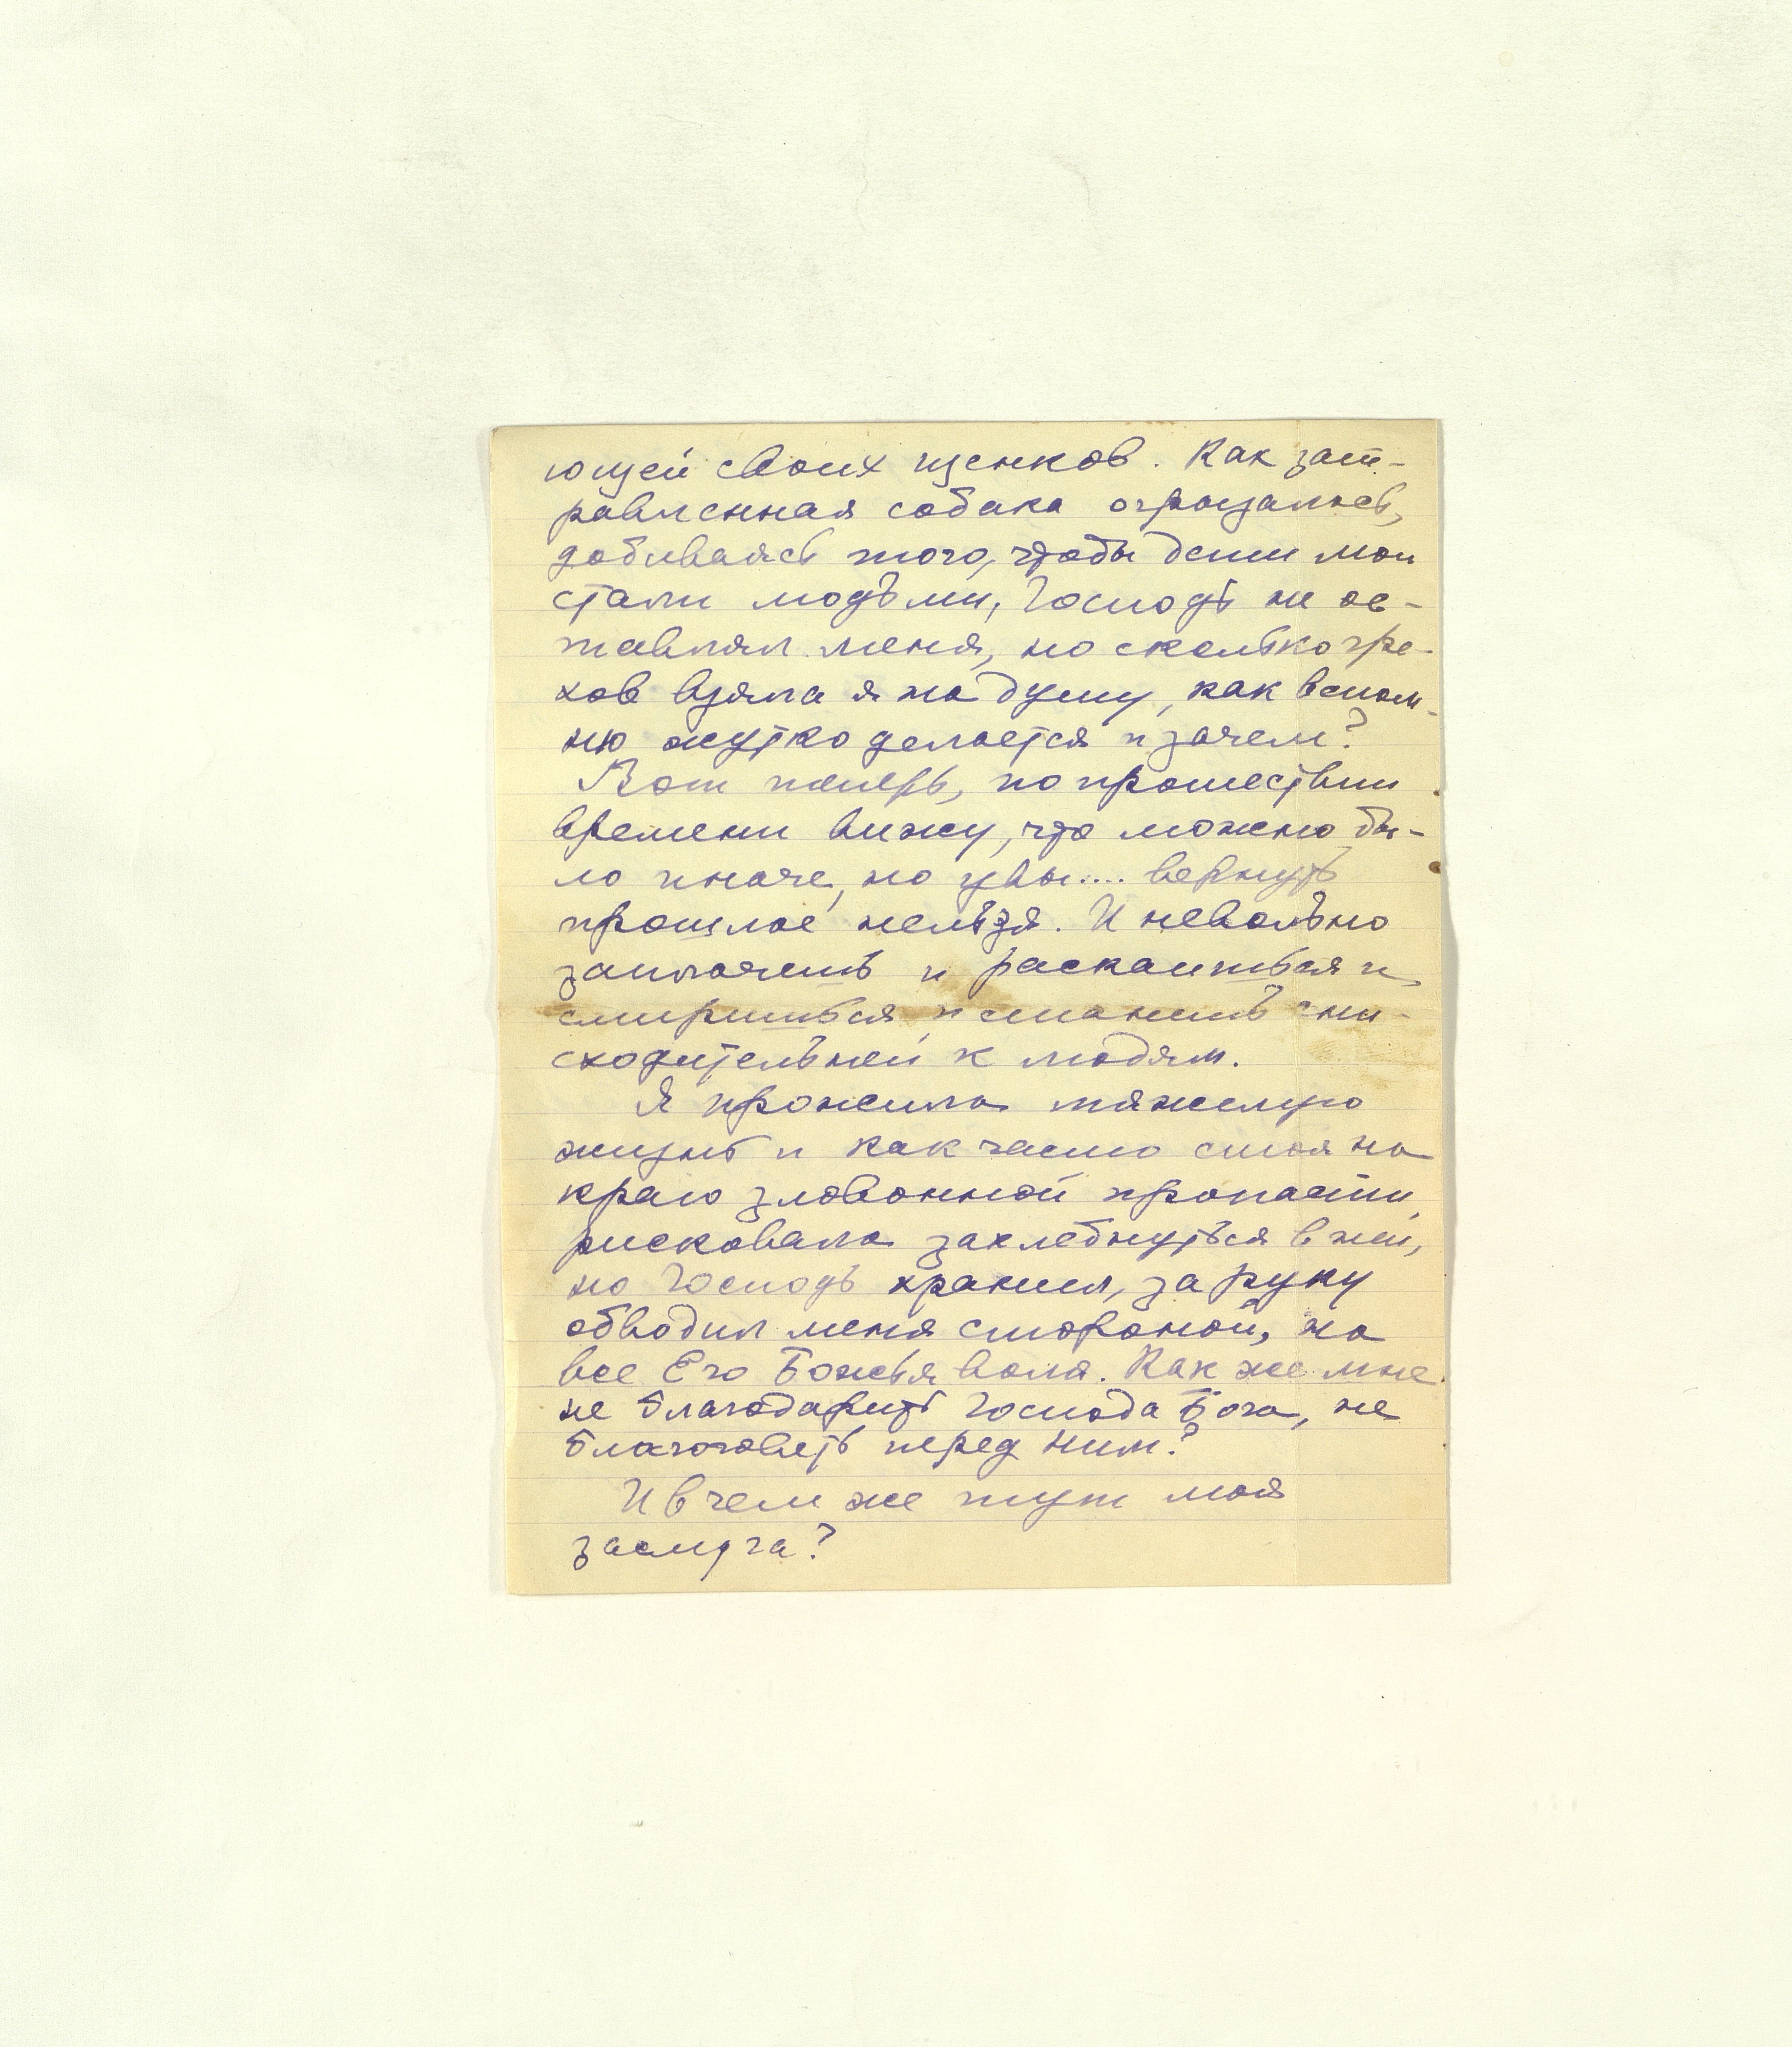 ющей своих щенков. Как зат-
равленная собака огрызалась,
добиваясь того, чтобы дети мои
стали людьми, Господь не ос-
тавлял меня, но сколько гре-
хов взяла я на душу, как вспом-
ню жутко делается и зачем?
Вот теперь, по прошествии
времени вижу, что можно бы-
ло иначе, но увы.... вернуть
прошлое нельзя. И невольно
заплачешь и раскаишься и
смиришься и станешь сни-
сходительней к людям.
Я прожила тяжелую
жизнь и как часто стоя на
краю зловонной пропасти,
рисковала захлебнуться в ней,
но Господь хранил, за руку
обводил меня стороной, на
все Его Божья воля. Как же мне
не благодарить Господа Бога, не
благоговеть перед Ним?
И в чем же тут моя
заслуга?